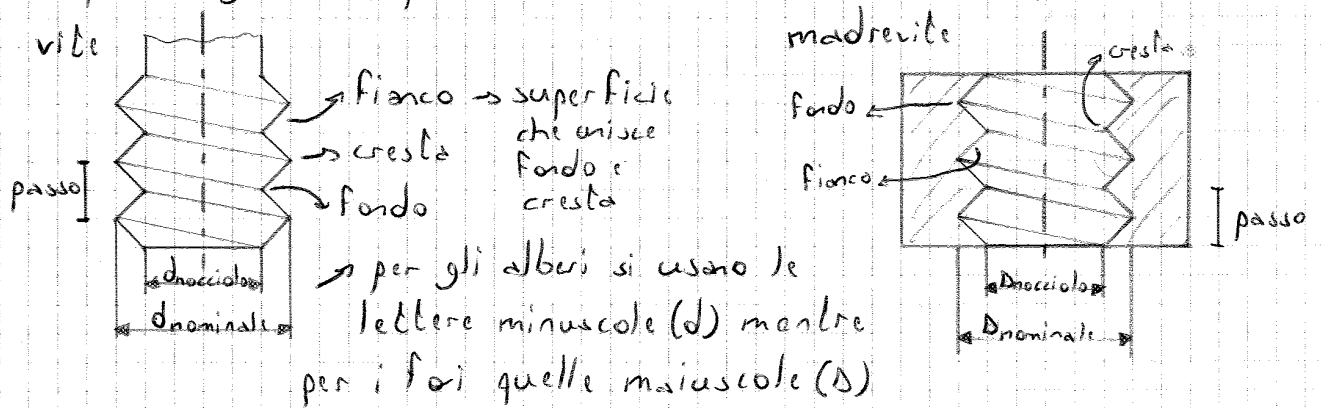 vite
fianco → superficie
che unisce
fondo e
cresta
cresta
fondo
passo
dnocciolo
dnominale
per gli alberi si usano le
lettere minuscole (d) mentre
per i fori quelle maiuscole (D)
madrevite
cresta
fondo
fianco
passo
Dnocciolo
Dnominale